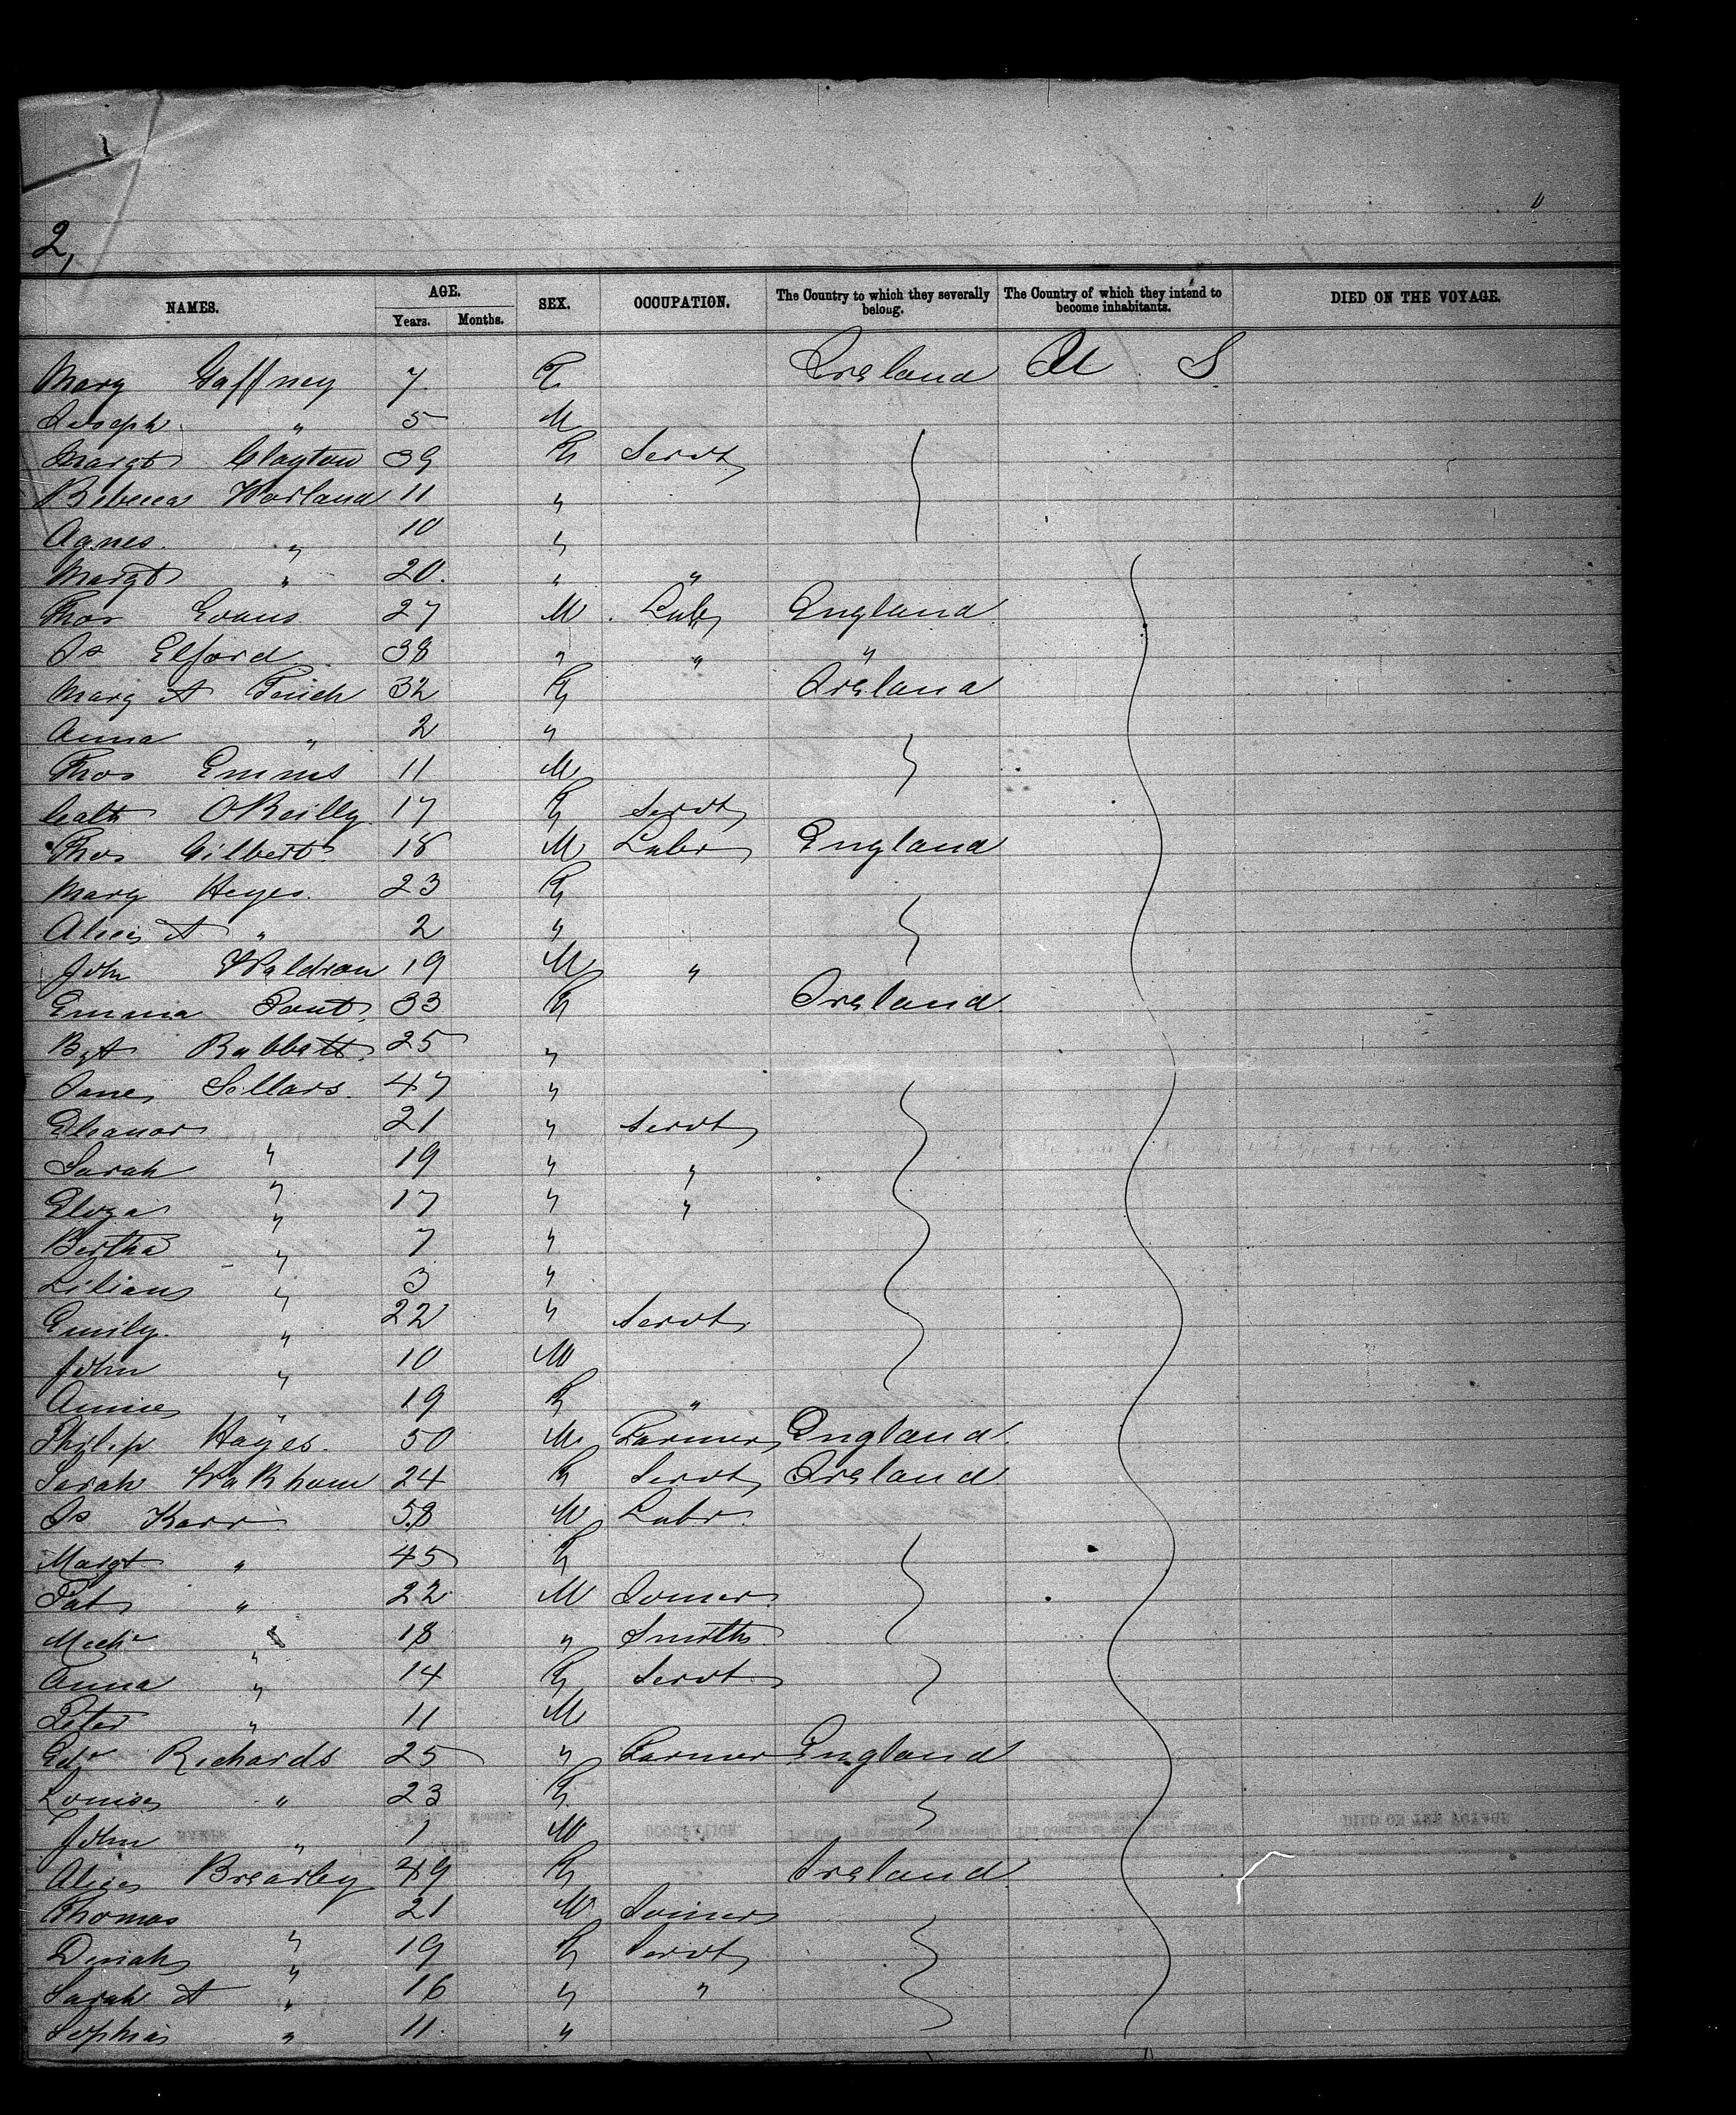 2,
NAMES. AGE. Years. Months. SEX. OCCUPATION. The Country to which they severally belong. The Country of which they intend to become inhabitants. DIED ON THE VOYAGE.
Mary Gaffney 7 F Ireland U S
Joseph " 5 M
Margt Clayton 39 F Servt
Rebecca Worland 11 "
Agnes " 10 "
Margt " 20 " "
Thos Evans 27 M Labr England
Js Elford 38 " " "
Mary A 32 F Ireland
Anna " 2 "
Thos Emms 11 M
Cath OReilly 17 F Servt
Thos Gilbert 18 M Labr England
Mary Heyes 23 F
Alice A " 2 "
John Waldron 19 M "
Emma 33 F Ireland
Bgt Rabbett 25 "
Jane Sellars 47 "
Eleanor " 21 " Servt
Sarah " 19 " "
Eliza " 17 " "
Bertha " 7 "
Lilian " 3 "
Emily " 22 " Servt
John " 10 M
Annie " 19 F "
Philip Hayes 50 M Farmer England
Sarah Wakham 24 F Servt Ireland
Js Karr 58 M Labr
Margt " 45 F
Pat " 22 M Joiner
Michl " 18 " Smith
Anna " 14 F Servt
Peter " 11 M
Edw Richards 25 " Farmer England
Louisa " 23 F
John " 1 M
Alice Brearley 49 F Ireland
Thomas " 21 M Joiner
Dinah " 19 F Servt
Sarah A " 16 " "
Sophia " 11 "